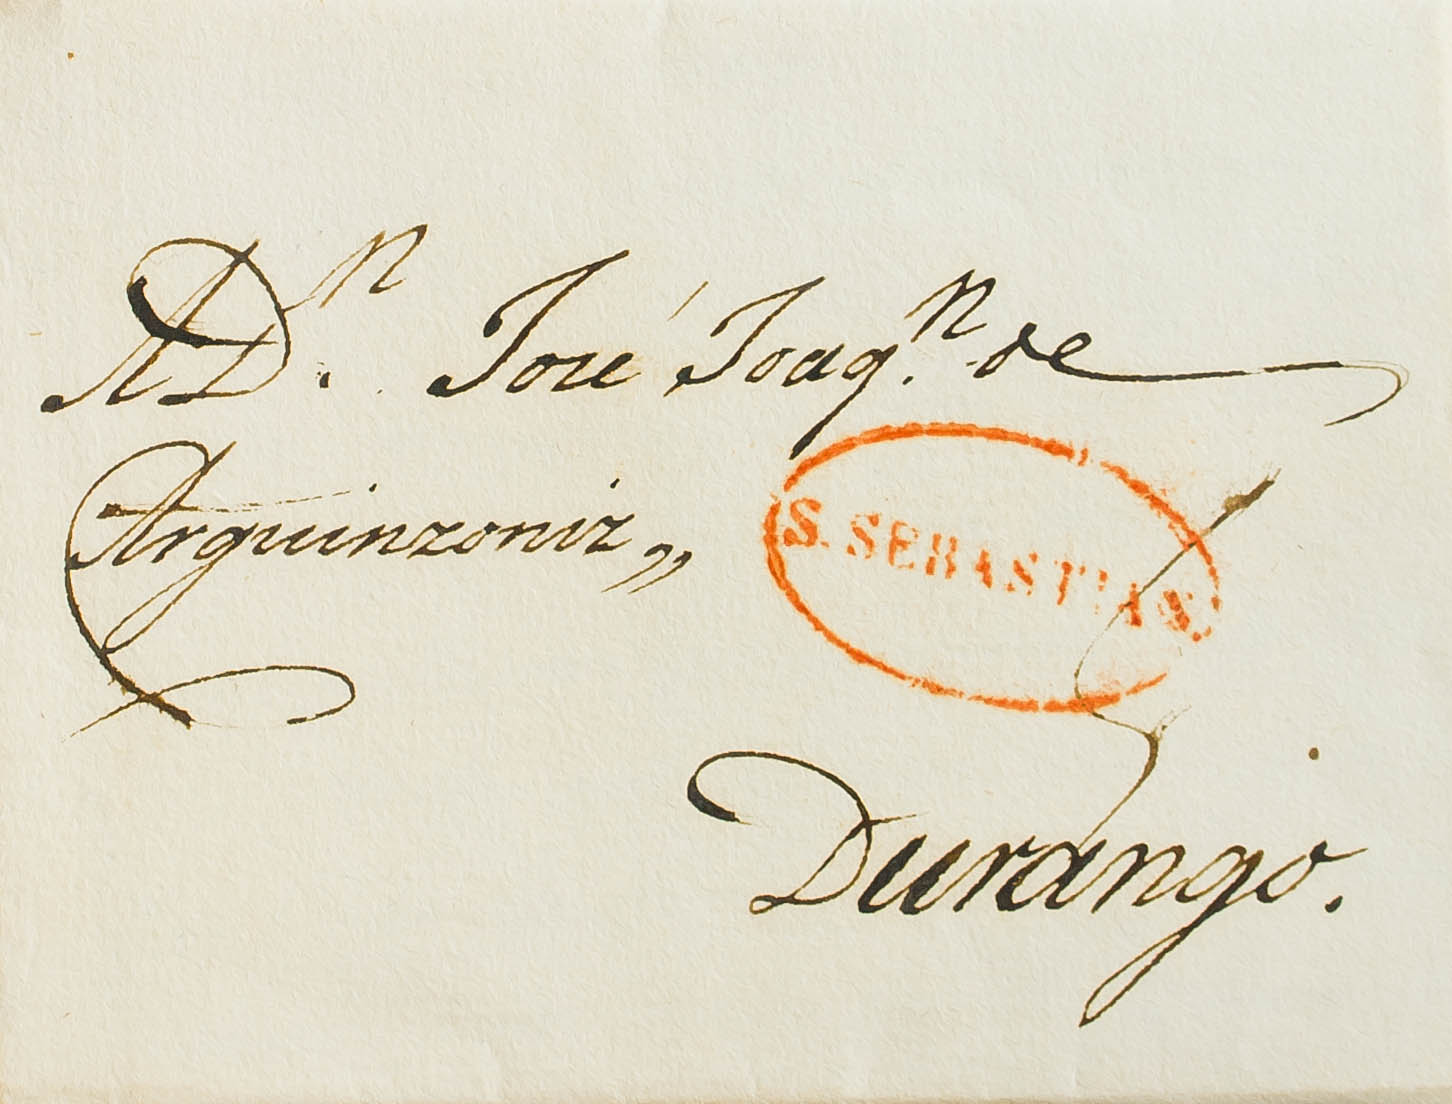 A Dn. José Joaqn. de
Arguinzoniz„
S. SEBASTIAN.
Durango.